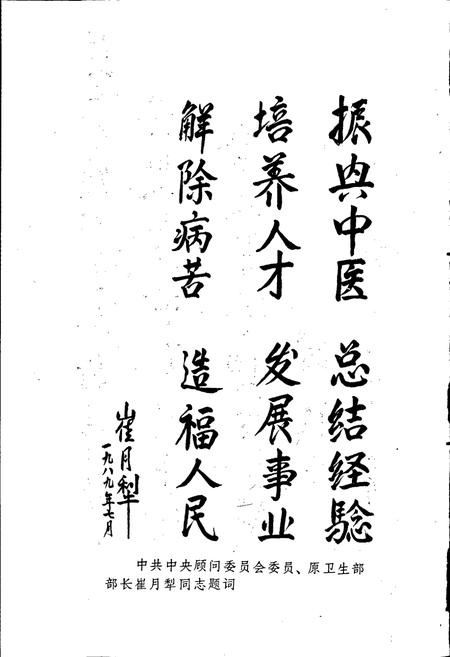 振兴中医 总结经验
培养人才 发展事业
解除病苦 造福人民
崔月犁
一九八九年七月
中共中央顾问委员会委员、原卫生部
部长崔月犁同志题词